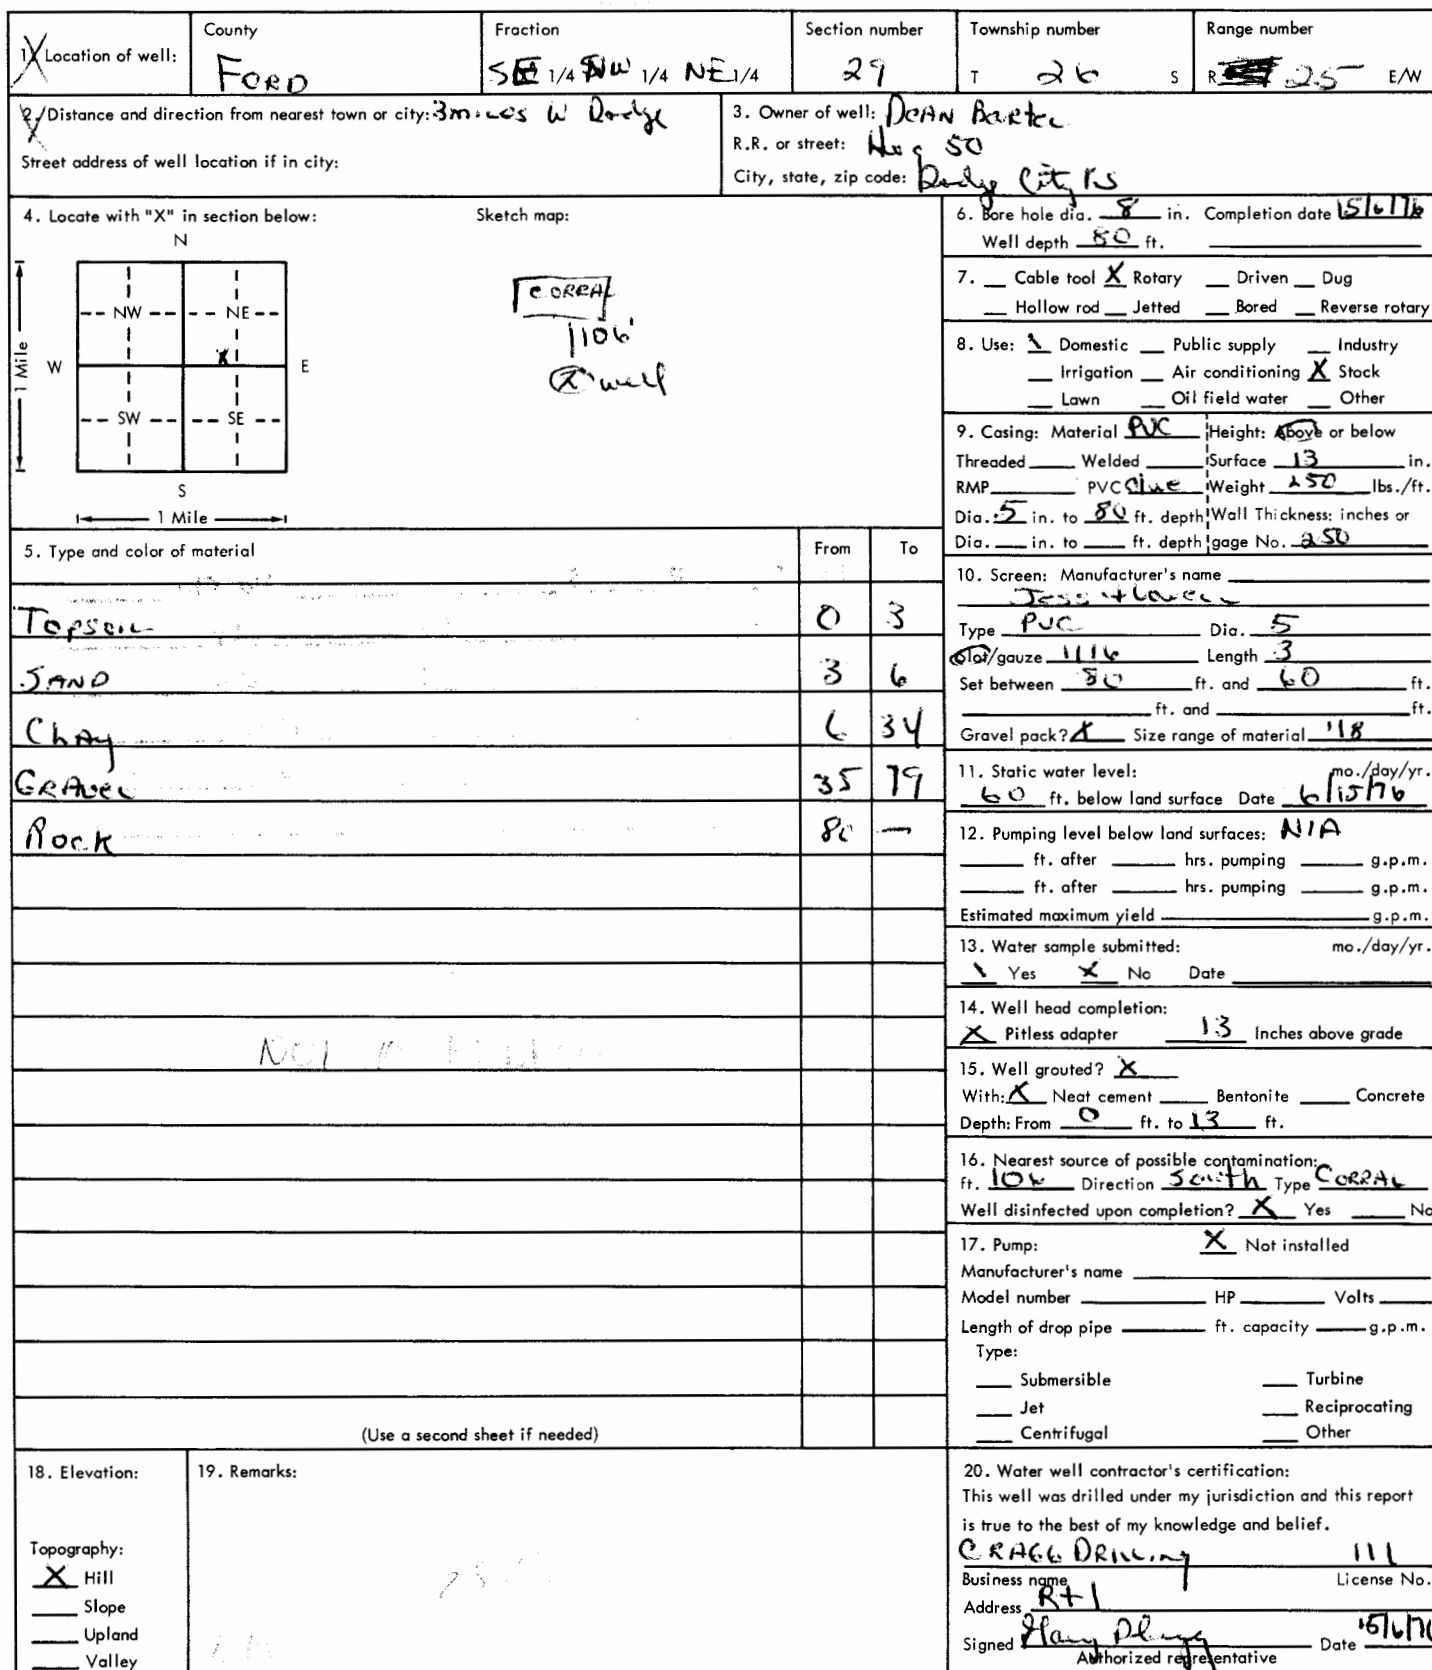 1. Location of well: County FORD Fraction SE 1/4 NW 1/4 NE 1/4 Section number 29 Township number T 26 S Range number R 25 E/W
2. Distance and direction from nearest town or city: 3 miles W Dodge
Street address of well location if in city:
3. Owner of well: DEAN Bartel
R.R. or street: 50
City, state, zip code: Dodge City KS
4. Locate with "X" in section below: Sketch map:
N
NW NE
X
W E
SW SE
S
1 Mile
1 Mile
CORRAL
106'
X well
5. Type and color of material From To
Topsoil 0 3
SAND 3 6
Chay 6 34
GRAVEL 35 79
Rock 80 —
(Use a second sheet if needed)
6. Bore hole dia. 8 in. Completion date 15/6/76
Well depth 80 ft.
7. Cable tool X Rotary Driven Dug
Hollow rod Jetted Bored Reverse rotary
8. Use: \ Domestic Public supply Industry
Irrigation Air conditioning X Stock
Lawn Oil field water Other
9. Casing: Material PVC Height: Above or below
Threaded Welded Surface 13 in.
RMP PVC Glue Weight 250 lbs./ft.
Dia. 5 in. to 80 ft. depth Wall Thickness: inches or
Dia. in. to ft. depth gage No. 250
10. Screen: Manufacturer's name
Jess + Lowell
Type PVC Dia. 5
Slot/gauze 1/16 Length 3
Set between 80 ft. and 60 ft.
ft. and ft.
Gravel pack? X Size range of material 1/8
11. Static water level: mo./day/yr.
60 ft. below land surface Date 6/15/76
12. Pumping level below land surfaces: N/A
ft. after hrs. pumping g.p.m.
ft. after hrs. pumping g.p.m.
Estimated maximum yield g.p.m.
13. Water sample submitted: mo./day/yr.
\ Yes X No Date
14. Well head completion:
X Pitless adapter 13 Inches above grade
15. Well grouted? X
With: X Neat cement Bentonite Concrete
Depth: From 0 ft. to 13 ft.
16. Nearest source of possible contamination:
ft. 106 Direction South Type CORRAL
Well disinfected upon completion? X Yes No
17. Pump: X Not installed
Manufacturer's name
Model number HP Volts
Length of drop pipe ft. capacity g.p.m.
Type:
Submersible Turbine
Jet Reciprocating
Centrifugal Other
18. Elevation:
Topography:
X Hill
Slope
Upland
Valley
19. Remarks:
20. Water well contractor's certification:
This well was drilled under my jurisdiction and this report
is true to the best of my knowledge and belief.
CRAGG DRILLING 111
Business name License No.
Address Rt 1
Signed Date 15/6/76
Authorized representative